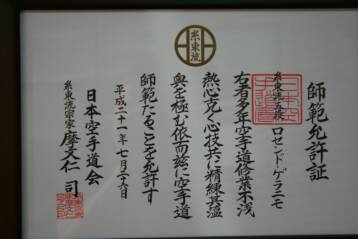 糸東流
師範允許証
糸東流五段 ロセンド・ゲラニモ
右者多年空手道修業不浅
熱心克く心技共に精練其薀
奥を極む依而茲に空手道
師範たることを允許す
平成二十一年七月二十六日
日本空手道会
糸東流宗家 摩文仁